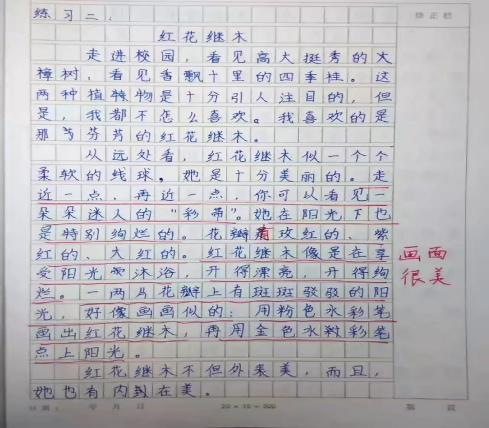 练习二.
修正栏
红花继木
走进校园，看见高大挺秀的大
樟树，看见香飘十里的四季桂。这
两种植物是十分引人注目的，但
是，我都不怎么喜欢。我喜欢的是
那芬芳的红花继木。
从远处看，红花继木似一个个
柔软的线球。她是十分美丽的。走
近一点，再近一点，你可以看见一
朵朵迷人的“彩带”。她在阳光下也
是特别绚烂的。花瓣有玫红的、紫
红的、大红的。红花继木像是在享
受阳光沐浴，开得漂亮，开得绚
烂。一两片花瓣上有斑斑驳驳的阳
光，好像画画似的：用粉色水彩笔
画出红花继木，再用金色水彩笔
点上阳光。
红花继木不但外表美，而且，
她也有内在美。
画面
很美
日期： 年 月 日
20×15=300
第 页